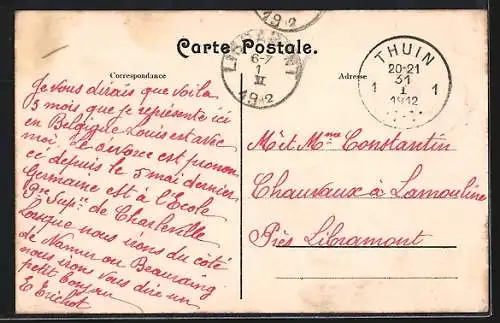 Carte Postale.
Correspondance
Adresse
Je vous dirais que voilà
3 mois que je représente ici
en Belgique Louis est avec
moi, le divorce est pronon
cé depuis le 5 mai dernier,
Germaine est à l'École
Pre Supre de Charleville
Lorsque nous irons du côté
de Namur ou Beauraing
nous irons vous dire un
petit bonjour
E
THUIN
20-21
31
1 I 1
1912
6-7
1
II
1912
1912
Mr et Mme Constantin
Chauvaux à Lamouline
Près Libramont